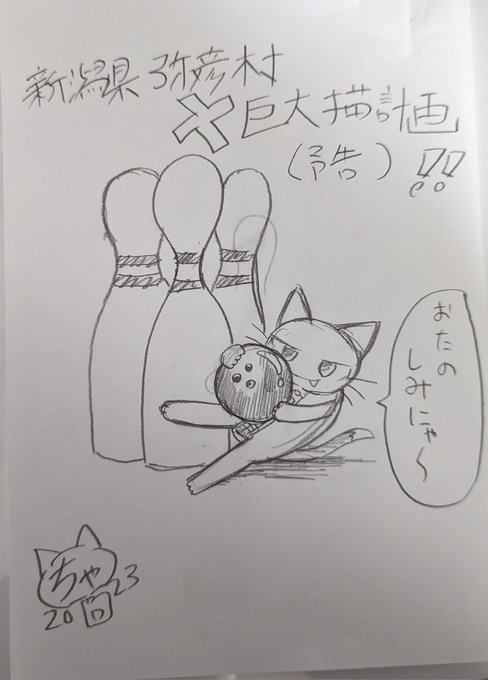 新潟県 弥彦村
×巨大猫計画
(予告)!!
おたの
しみにゃ~
ちゃ
2023